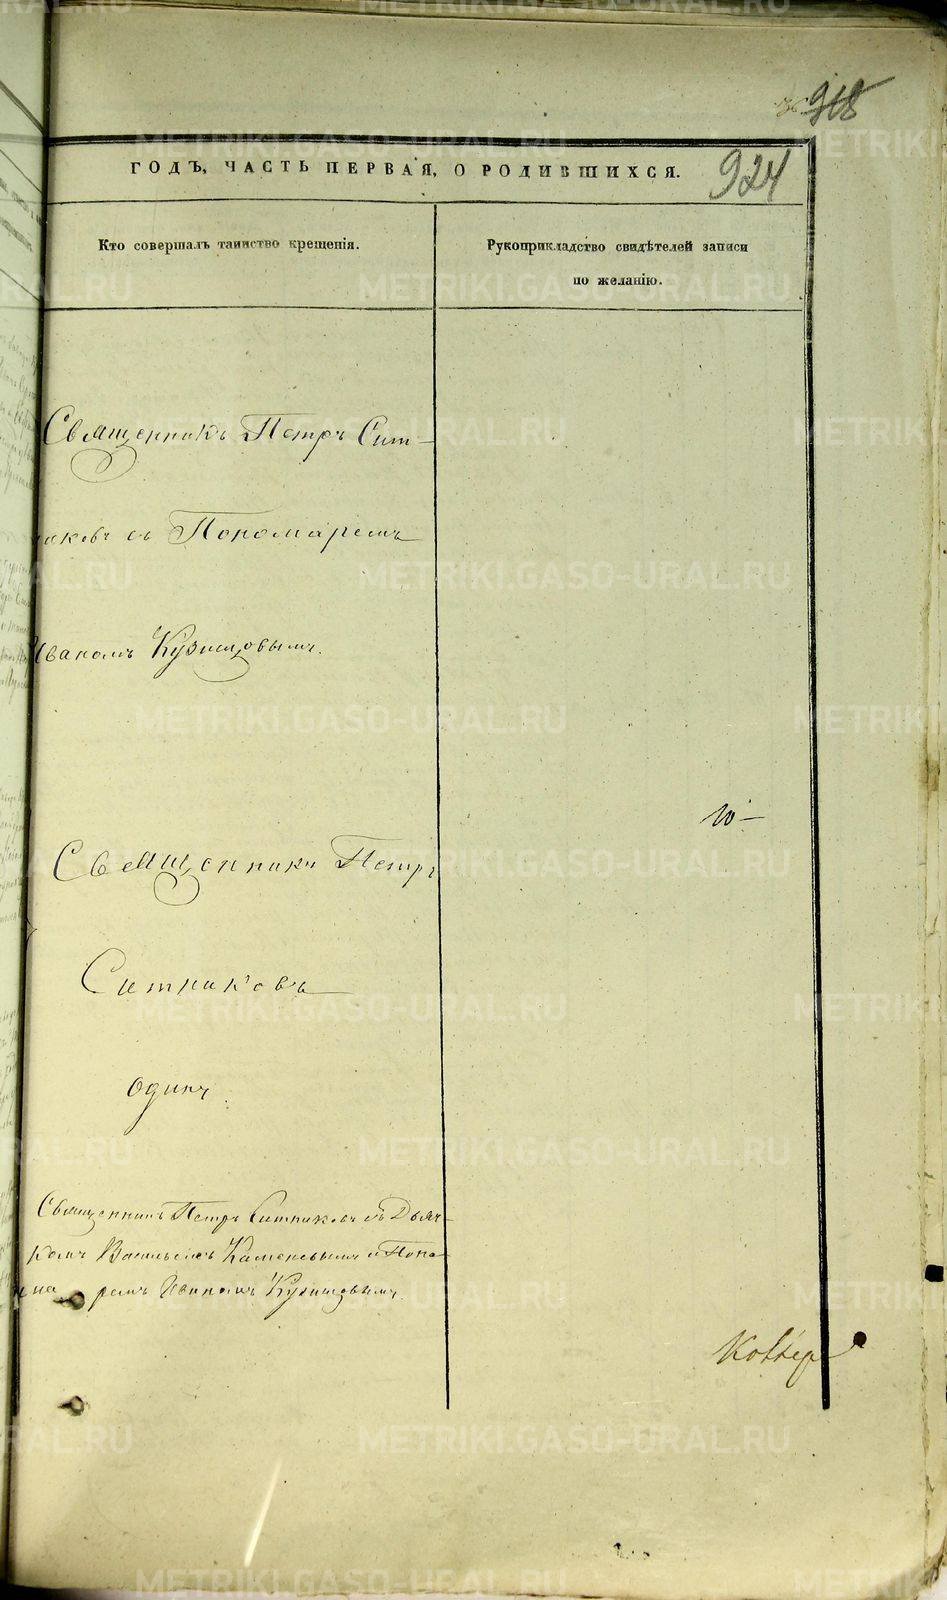 918
924
ГОДЪ, ЧАСТЬ ПЕРВАЯ, О РОДИВШИХСЯ.
Кто совершалъ таинство крещенія.
Рукоприкладство свидѣтелей записи
по желанію.
Священникъ Петръ Сит-
никовъ съ Пономаремъ
Иваномъ Кузнецовымъ.
Священникъ Петръ
Ситниковъ
одинъ.
Священникъ Петръ Ситниковъ съ Дьяч-
комъ Васильемъ Каменевымъ и Поно-
маремъ Иваномъ Кузнецовымъ.
METRIKI.GASO-URAL.RU